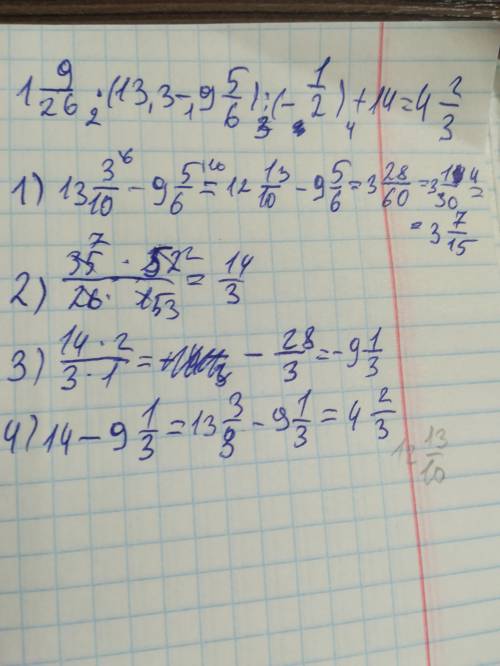 1 9/26 · (13,3 - 9 5/6) : (- 1/2) + 14 = 4 2/3
1) 13 3/10 - 9 5/6 = 12 13/10 - 9 5/6 = 3 28/60 = 3 14/30 =
= 3 7/15
2) 35 · 52/26 · 15 = 14/3
3) 14 · 2/3 · 1 = - 28/3 = - 9 1/3
4) 14 - 9 1/3 = 13 3/3 - 9 1/3 = 4 2/3
12 13/10